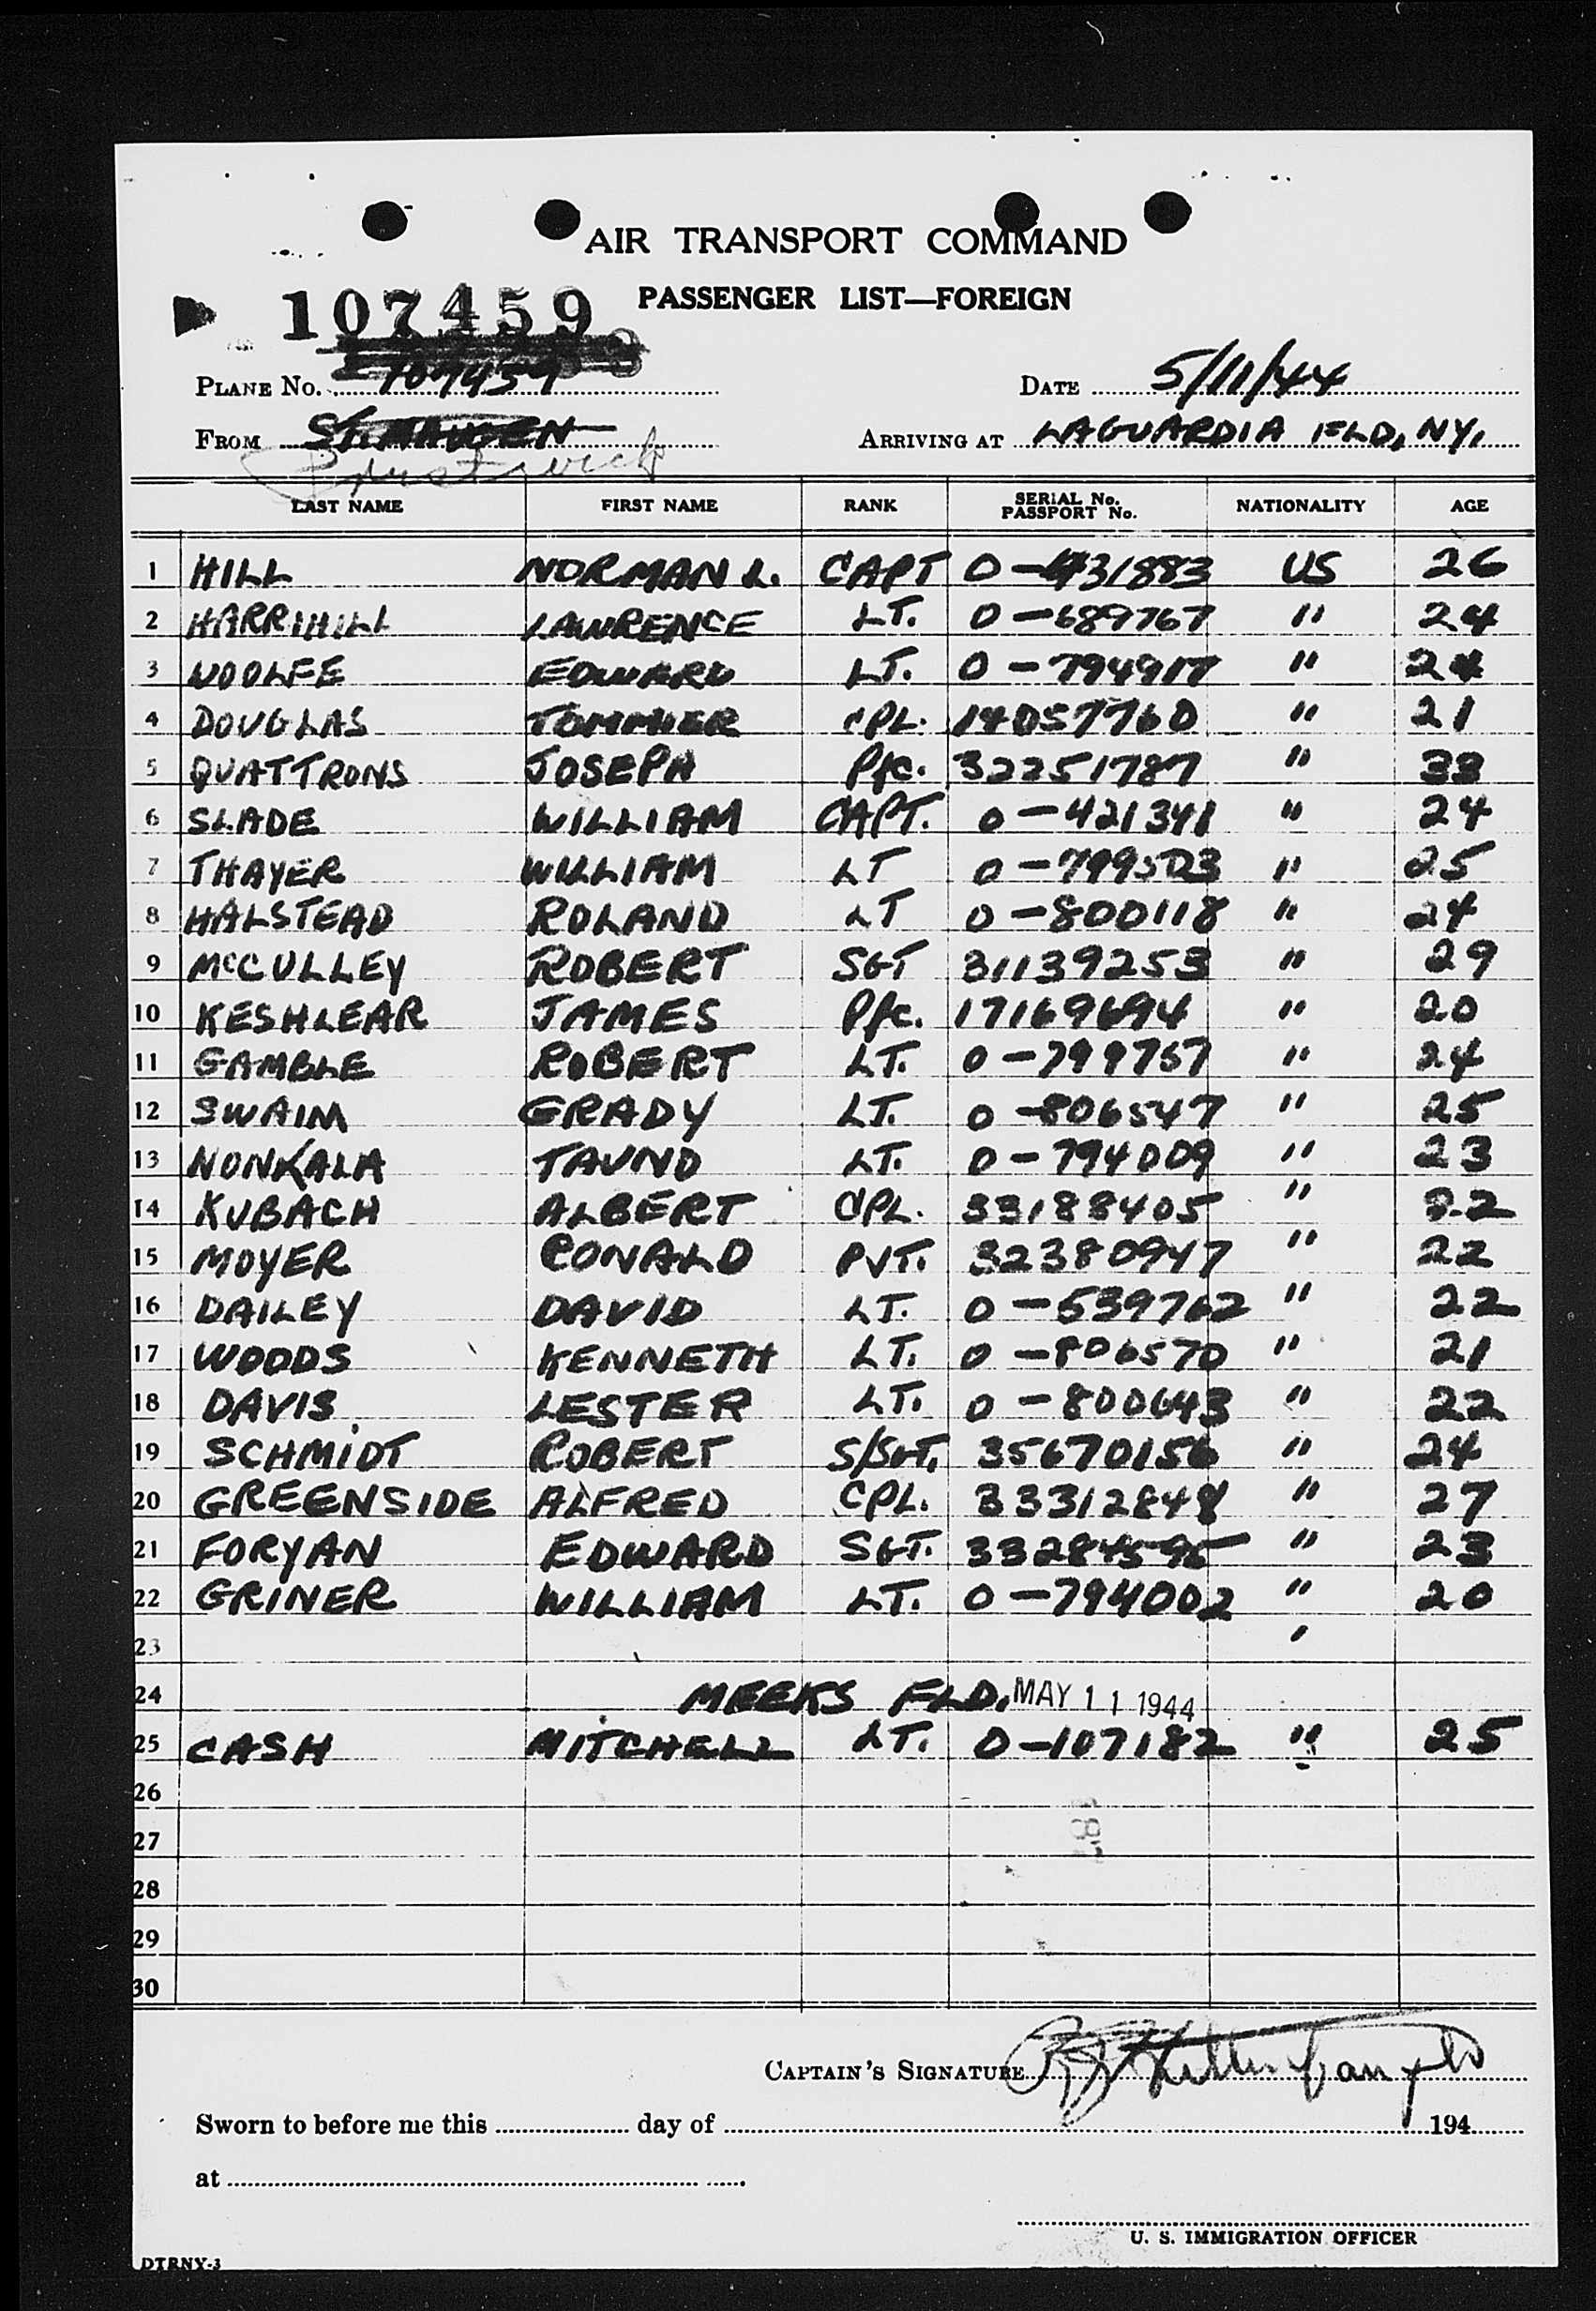 AIR TRANSPORT COMMAND
PASSENGER LIST—FOREIGN
107459
PLANE No. 107459 DATE 5/11/44
FROM ST. MAWGEN ARRIVING AT LAGUARDIA FLD, NY.
Prestwick
LAST NAME FIRST NAME RANK SERIAL No. PASSPORT No. NATIONALITY AGE
1 HILL NORMAN L. CAPT O-431883 US 26
2 HARRIHILL LAWRENCE LT. O-689767 " 24
3 WOOLFE EDWARD LT. O-794917 " 24
4 DOUGLAS TOMMIER CPL. 14057760 " 21
5 QUATTRONS JOSEPH Pfc. 32251787 " 33
6 SLADE WILLIAM CAPT. O-421341 " 24
7 THAYER WILLIAM LT O-799503 " 25
8 HALSTEAD ROLAND LT O-800118 " 24
9 McCULLEY ROBERT SGT 31139253 " 29
10 KESHLEAR JAMES Pfc. 17169694 " 20
11 GAMBLE ROBERT LT. O-799757 " 24
12 SWAIM GRADY LT. O-806547 " 25
13 NONKALA TAUNO LT. O-794009 " 23
14 KUBACH ALBERT CPL. 33188405 " 22
15 MOYER RONALD PVT. 32380947 " 22
16 DAILEY DAVID LT. O-539762 " 22
17 WOODS KENNETH LT. O-806570 " 21
18 DAVIS LESTER LT. O-800643 " 22
19 SCHMIDT ROBERT S/SGT. 35670156 " 24
20 GREENSIDE ALFRED CPL. 33312848 " 27
21 FORYAN EDWARD SGT. 33284595 " 23
22 GRINER WILLIAM LT. O-794002 " 20
23
24 MEEKS FLD. MAY 11 1944
25 CASH MITCHELL LT. O-107182 " 25
26
27
28
29
30
CAPTAIN'S SIGNATURE
Sworn to before me this day of 194
at
U. S. IMMIGRATION OFFICER
DTRNY-3